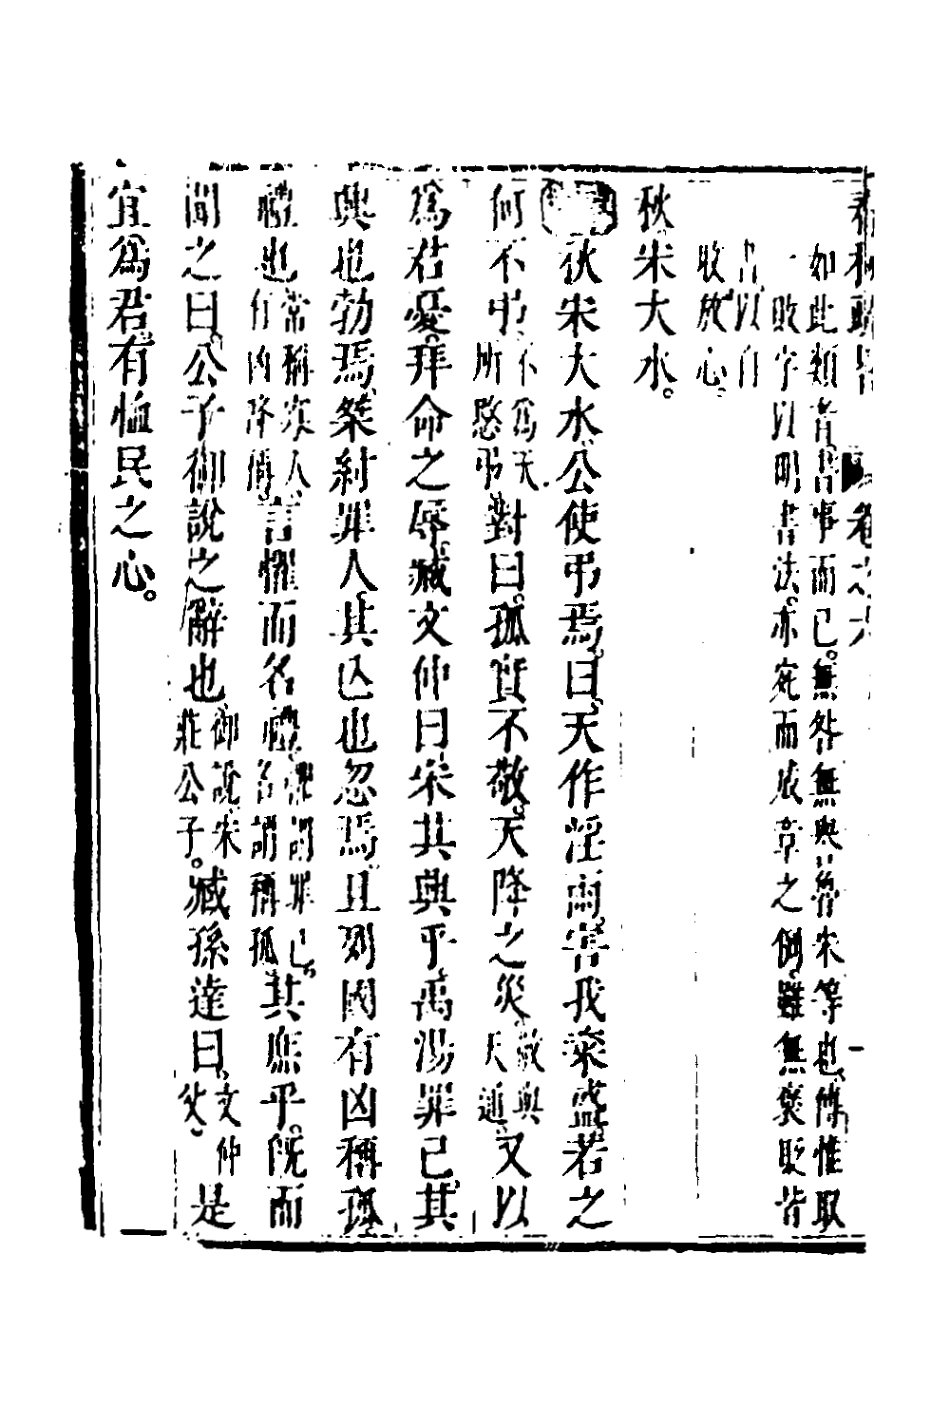 春秋 卷之六
如此類者書事而已。無咎無與。魯宋等也。傳惟取
一敗字以明書法。亦宛而成章之例。雖無褒貶。皆
書。以自
收放心。
秋宋大水。
秋宋大水。公使弔焉。曰。天作淫雨。害我粢盛。若之
何不弔。不為天所愍弔對曰。孤實不敬。天降之災。敬與天通又以
為君憂。拜命之辱。臧文仲曰。宋其興乎。禹湯罪己。其
興也勃焉。桀紂罪人。其亾也忽焉。且列國有凶稱孤
禮也常稱寡人有凶降稱言懼而名禮。懼謂罪己。名謂稱孤其庶乎。既而
聞之曰。公子御說之辭也御說。宋莊公子。臧孫達曰。文仲父是
宜為君。有恤民之心。